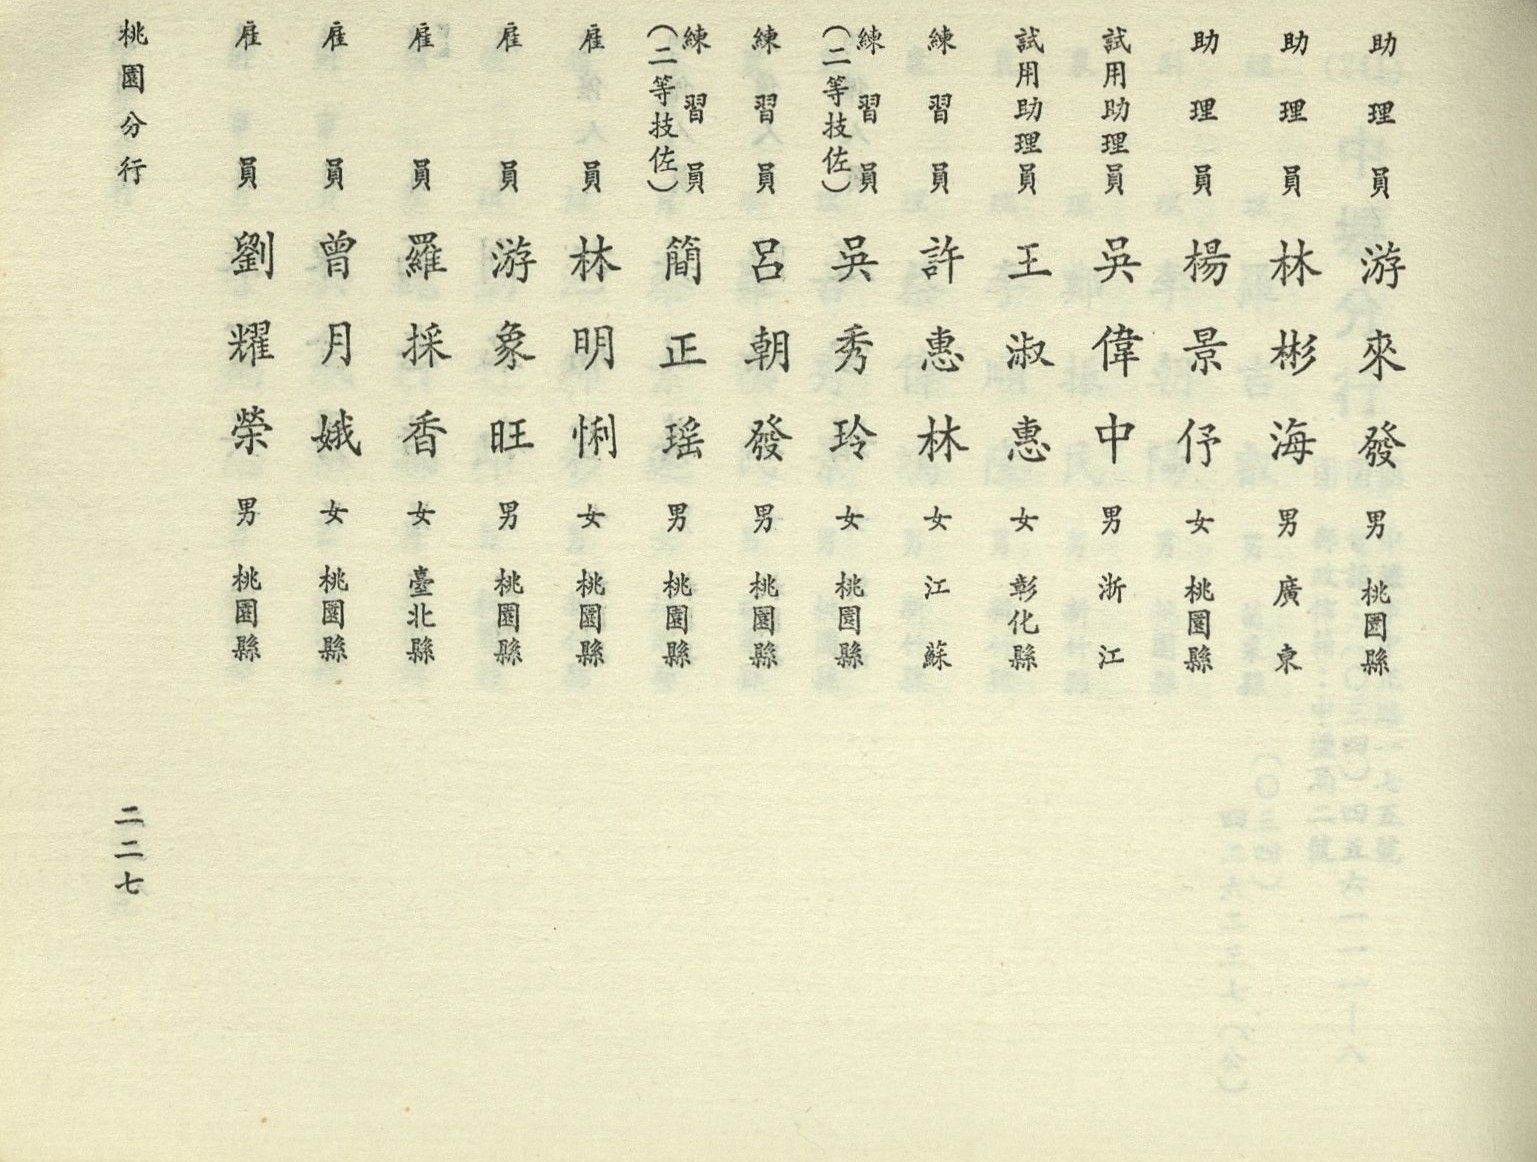 助理員 游來發 男 桃園縣
助理員 林彬海 男 廣東
助理員 楊景伃 女 桃園縣
試用助理員 吳偉中 男 浙江
試用助理員 王淑惠 女 彰化縣
練習員 許惠林 女 江蘇
練習員(二等技佐) 吳秀玲 女 桃園縣
練習員 呂朝發 男 桃園縣
練習員(二等技佐) 簡正瑤 男 桃園縣
雇員 林明悧 女 桃園縣
雇員 游象旺 男 桃園縣
雇員 羅採香 女 臺北縣
雇員 曾月娥 女 桃園縣
雇員 劉耀榮 男 桃園縣
桃園分行
二二七